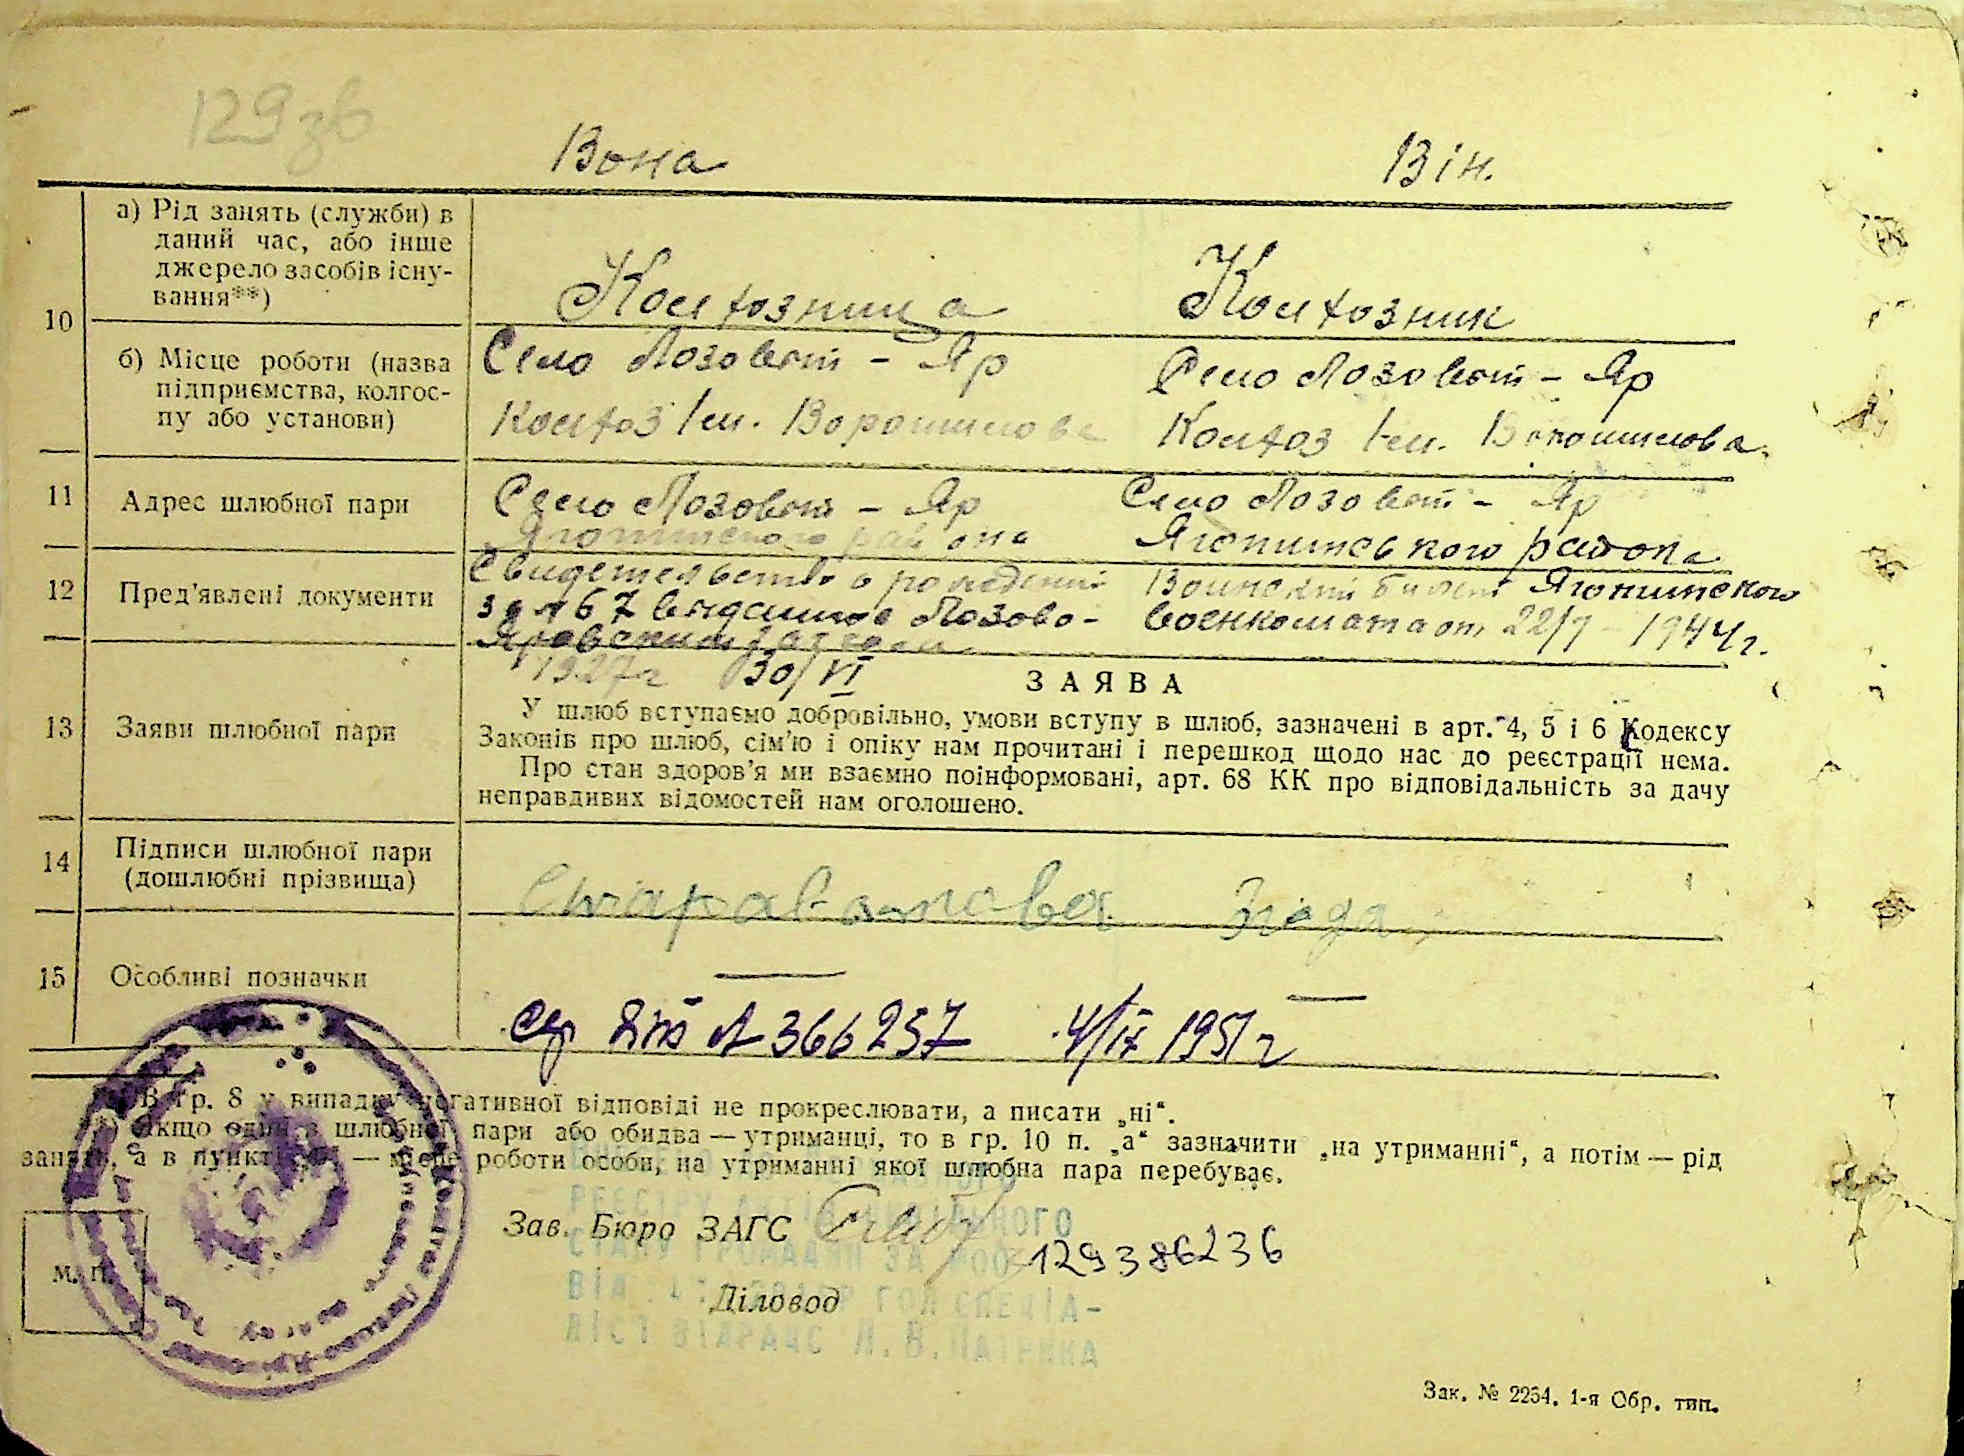 129зв
Вона Він.
10
а) Рід занять (служби) в
даний час, або інше
джерело засобів існу-
вання**)
Колхозница Колхозник
б) Місце роботи (назва
підприємства, колгос-
пу або установи)
Село Лозовот - Яр Село Лозовот - Яр
Колхоз Им. Ворошилова Колхоз Им. Ворошилова.
11 Адрес шлюбної пари
Село Лозовот - Яр Село Лозовот - Яр
Яготинского района Яготинського района
12 Пред'явлені документи
Свидетельство о рождении Воинский билет Яготинского
за № 67 выданное Лозово- военкомата от 22/ 1944 г.
Яровским загсом
1927г 30/VI
13 Заяви шлюбної пари
ЗАЯВА
У шлюб вступаємо добровільно, умови вступу в шлюб, зазначені в арт. 4, 5 і 6 Кодексу
Законів про шлюб, сім'ю і опіку нам прочитані і перешкод щодо нас до реєстрації нема.
Про стан здоров'я ми взаємно поінформовані, арт. 68 КК про відповідальність за дачу
неправдивих відомостей нам оголошено.
14 Підписи шлюбної пари
(дошлюбні прізвища)
15 Особливі позначки
№ 366257 4/IX 1951 г
В гр. 8 у випадку негативної відповіді не прокреслювати, а писати „ні“.
Якщо один з шлюбної пари або обидва — утриманці, то в гр. 10 п. „а“ зазначити „на утриманні“, а потім — рід
занять, а в пункті — місце роботи особи, на утриманні якої шлюбна пара перебуває.
Зав. Бюро ЗАГС
129386236
Діловод
М. П.
РЕЄСТРУ АКТІВ ЦИВІЛЬНОГО
СТАНУ ГРОМАДЯН ЗА
ГОЛ СПЕЦІА-
ЛІСТ ВІДРАЦС Л. В. ПАТРИКА
Зак. № 2254. 1-я Обр. тип.